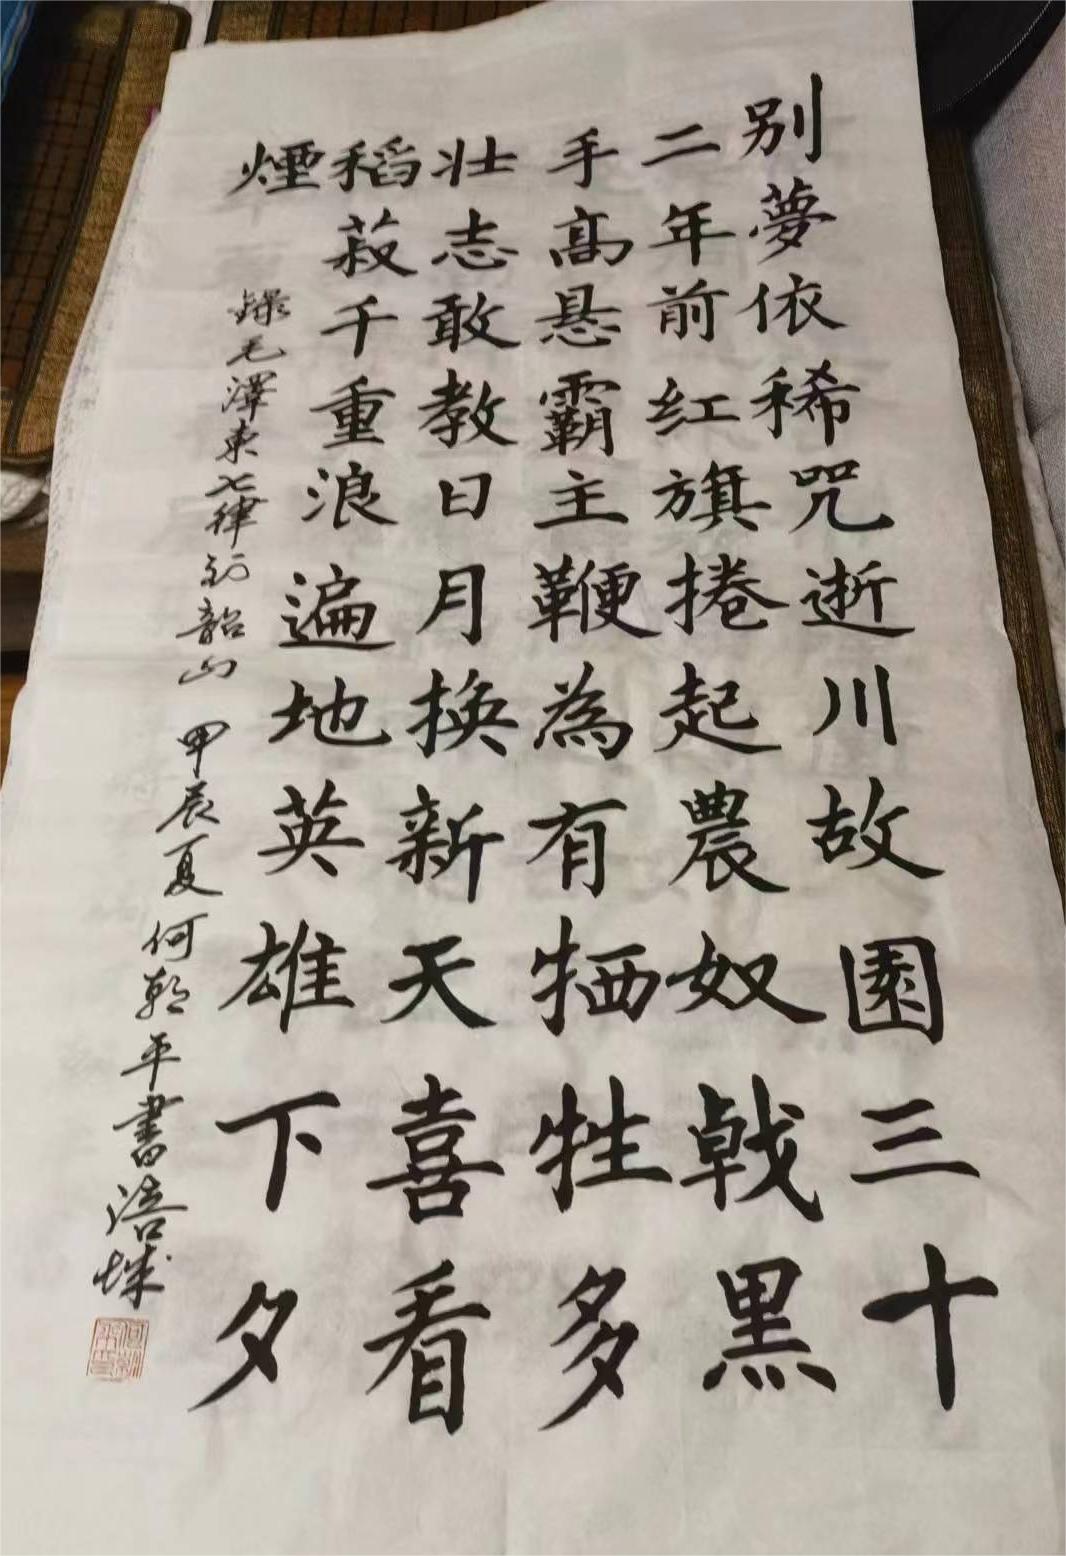 别夢依稀咒逝川故園三十
二年前红旗捲起農奴戟黑
手高悬霸主鞭為有牺牲多
壮志敢教日月换新天喜看
稻菽千重浪遍地英雄下夕
煙
錄毛澤东七律到韶山 甲辰夏何朝平書涪城